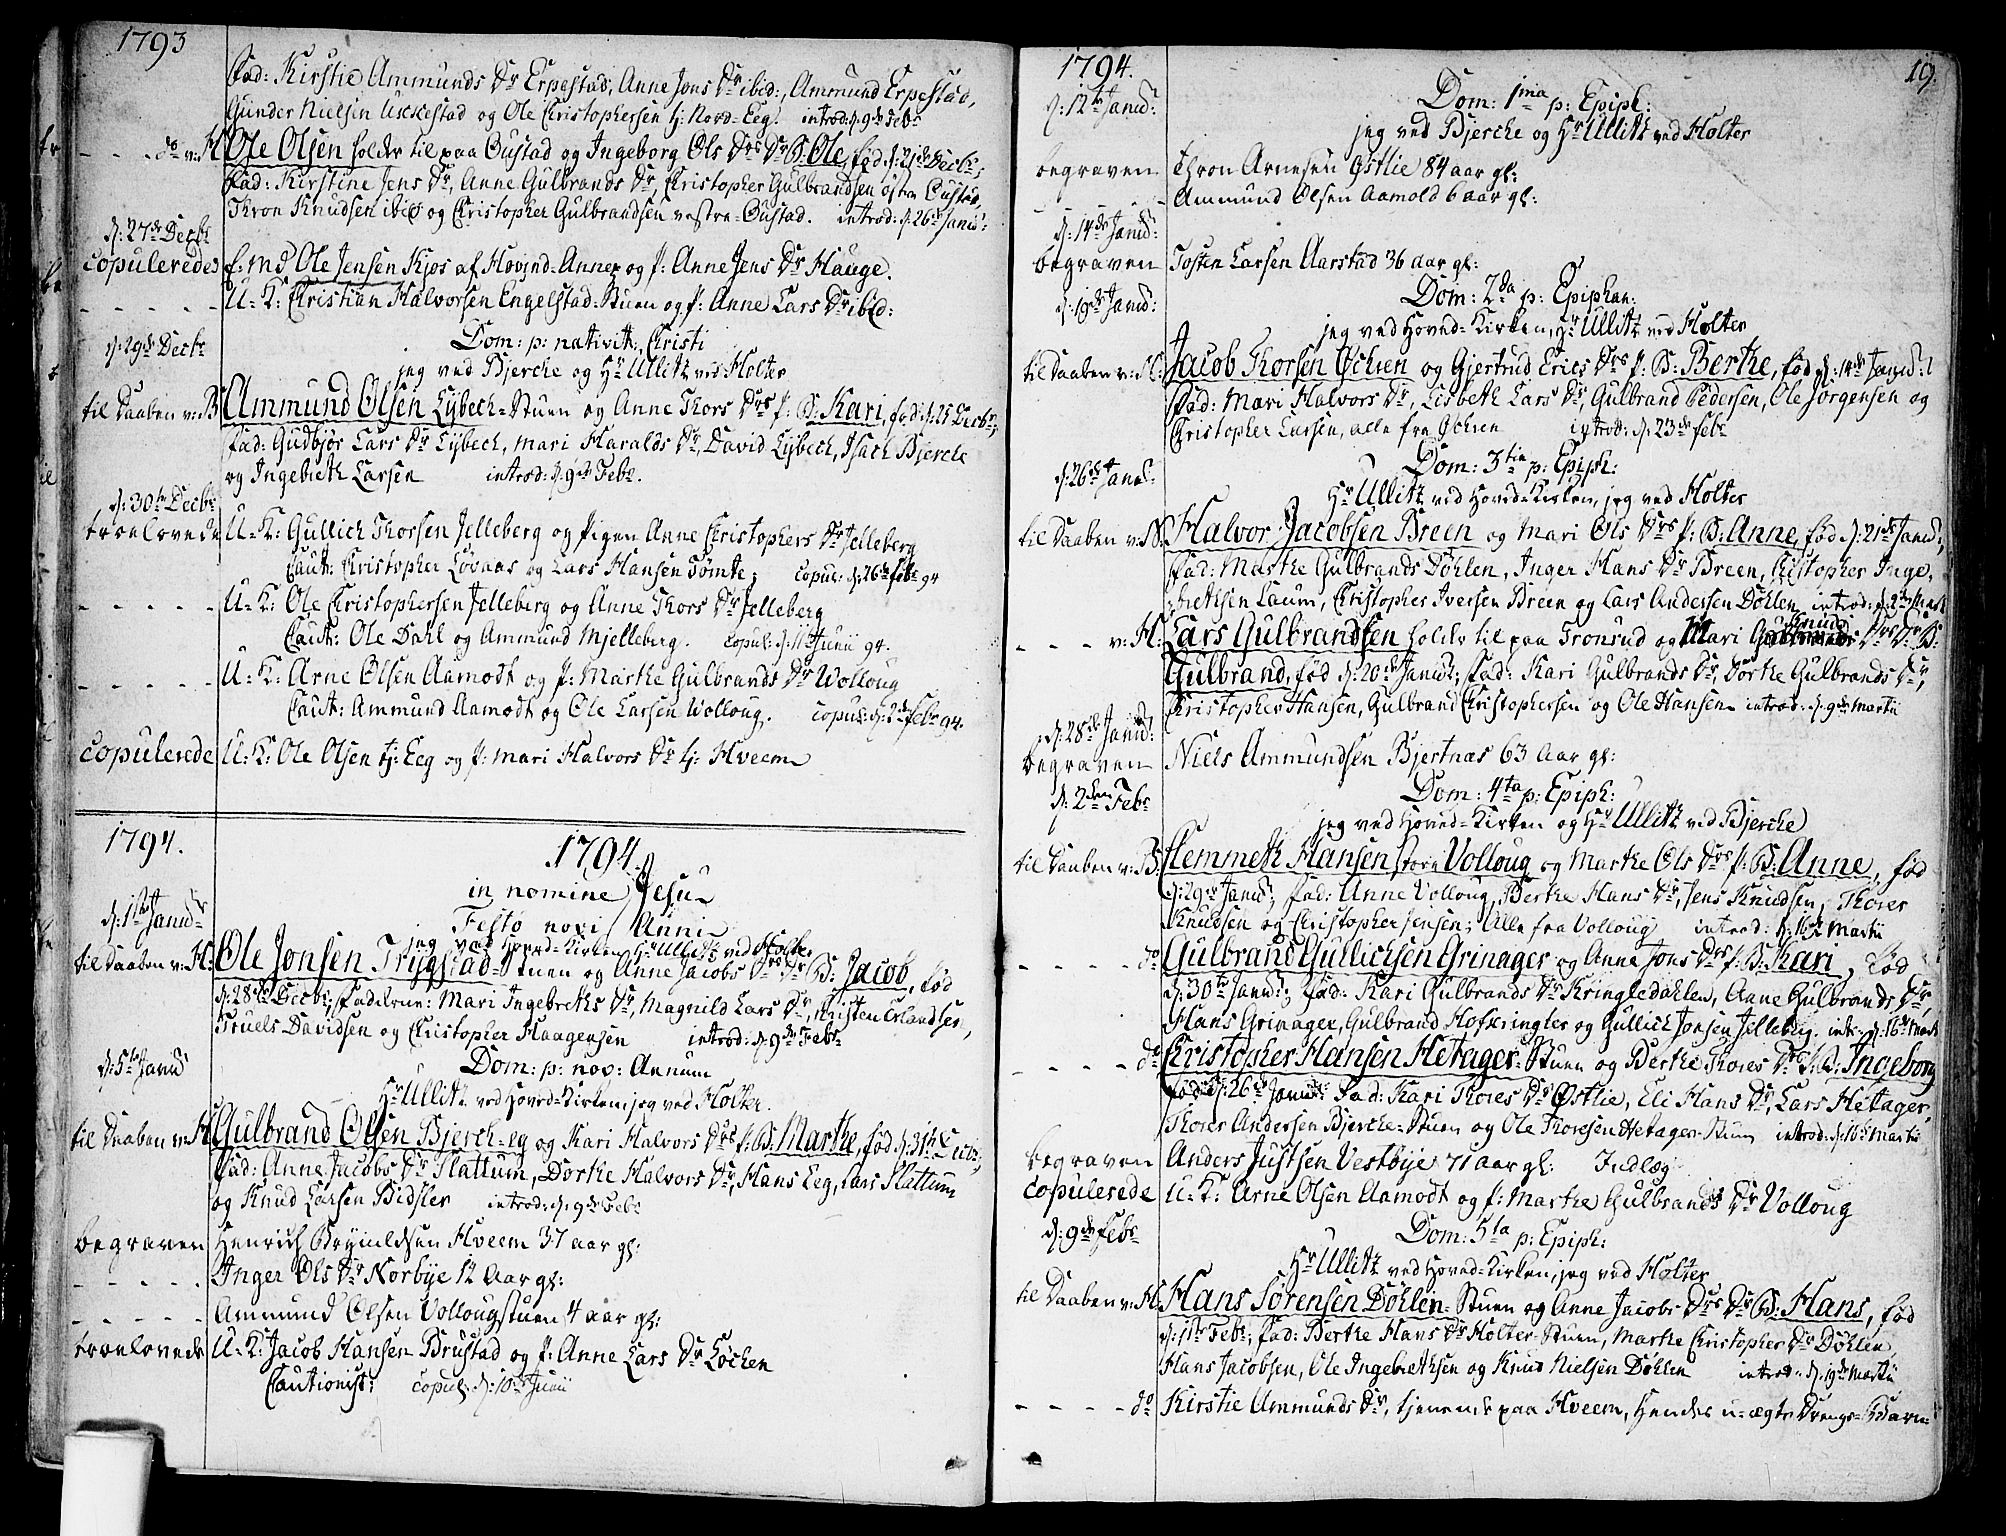 1793
Fad: Kirstie Ammunds Dr Erpestad, Anne Jons Dr ibid:, Ammund Erpestad,
Gunder Nielsen Ukkestad og Ole Christophersen tj: Nord=Eeg. introd: d: 9de Febr
- - - do v: H Ole Olsen holder til paa Gustad og Ingeborg Ols Drs Dr B: Ole, fød d: 21de Decbr;
Fad: Kirstine Jens Dr, Anne Gulbrands Dr, Christopher Gulbrandsen østre Gustad,
Thron Knudsen ibid og Christopher Gulbrandsen vestre=Gustad. introd: d: 26de Janui:
d: 27de Decbr
copulerede f. md Ole Jensen Kjos af Hovind=Annex og p: Anne Jens Dr Hauge.
- - - - - U=K: Christian Halvorsen Engelstad=Stuen og p: Anne Lars Dr ibid:
d: 29de Decbr
Dom: p: nativit: Christi
jeg ved Bjercke og Hr Ullitz ved Holter
til Daaben v: B Ammund Olsen Lybech=Stuen og Anne Thors Drs p: B: Kari, fød d: 25 Decbr;
Fad: Gudbjør Lars Dr Lybech, Mari Haralds Dr, David Lybech, Isach Bjercke
og Ingebreth Larsen introd: d: 9de Febr.
d: 30te Decbr
troelovede U=K: Gullich Thorsen Jelleberg og Pigen Anne Christophers Dr Jelleberg
Caut: Christopher Lovaas og Lars Hansen Tømte. copul: d: 26de Febr 94
- - - - - U=K: Ole Christophersen Jelleberg og Anne Thors Dr Jelleberg
Caut: Ole Dahl og Ammund Mjelleberg. copul: d: 11te Junii 94.
- - - - - U=K: Arne Olsen Aamodt og p: Marthe Gulbrands Dr Wolloug
Caut: Ammund Aamodt og Ole Larsen Wolloug. copul: d: 2de Febr 94.
copulerede U=K: Ole Olsen tj: Eeg og p: Mari Halvors Dr tj: Hveem
1794.
1794.
in nomine Jesu
d: 1ste Janui
Festo novi Anni
jeg ved Hoved=Kirken Hr Ullitz ved Holter
til Daaben v: H: Ole Jonsen Trygstad=Stuen og Anne Jacobs Drs Dr B: Jacob, fød
d: 28de Decbr; Fadderne: Mari Ingebreths Dr, Magnild Lars Dr, Christen Erlandsen,
Truels Davidsen og Christopher Haagensen introd: d: 9de Febr
d: 5te Janui
Dom: p: nov: Annum
Hr Ullitz ved Hoved=Kirken, jeg ved Holter.
til Daaben v: H Gulbrand Olsen Bjerch=eg og Kari Halvors Drs p: B: Marthe, fød d: 31te Decbr;
Fad: Anne Jacobs Dr Slattum, Dorthe Halvors Dr, Hans Eeg, Lars Slattum
og Knud Larsen Bidsler introd: d: 9de Febr
begraven Henrich Brynildsen Hveem 37 aar gl:
- - - - - Inger Ols Dr Norbye 12 Aar gl:
- - - - - Ammund Olsen Vollougstuen 4 aar gl:
troelovede U=K: Jacob Hansen Brustad og p: Anne Lars Dr Lochen
Cautionist: copul: d: 10de Junii
1794.
19.
d: 12te Janui:
Dom: 1ma p: Epiph:
jeg ved Bjercke og Hr Ullitz ved Holter
begraven Thron Arnesen Østlie 84 aar gl:
- - - - - Ammund Olsen Aamold 6 aar gl:
d: 14de Janui:
begraven Tosten Larsen Aarstad 36 aar gl:
d: 19de Janui:
Dom: 2da p: Epiphan:
jeg ved Hoved=Kirken, Hr Ullitz ved Holter
til Daaben v: H: Jacob Thorsen Ochren og Gjertrud Erics Drs p: B: Berthe, fød d: 14de Janui:
Fad: Mari Halvors Dr, Lisbeth Lars Dr, Gulbrand Pedersen, Ole Jørgensen og
Christopher Larsen, alle fra Ochren introd: d: 23de Febr
d: 26de Janui:
Dom: 3tia p: Epiph:
Hr Ullitz ved Hoved=Kirken, jeg ved Holter
til Daaben v: N: Halvor Jacobsen Breen og Mari Ols Drs p: B: Anne, fød d: 21de Janui;
Fad: Marthe Gulbrands Døhlen, Inger Hans Dr Breen, Christopher Inge,
brethsen Laum, Christopher Iversen Breen og Lars Andersen Døhlen introd: d: 2de Mart
- - - v: H: Lars Gulbrandsen holder til paa Tronrud og Mari Knuds Drs Dr B:
Gulbrand, fød d: 20de Janui; Fad: Kari Gulbrands Dr, Dorthe Gulbrands Dr,
Christopher Hansen, Gulbrand Christophersen og Ole Hansen introd: d: 9de Martii
d: 28de Janui:
begraven Niels Ammundsen Bjertnæs 63 aar gl:
d: 2den Febr
Dom: 4ta p: Epiph:
jeg ved Hoved=Kirken og Hr Ullitz ved Bjercke
til Daaben v: B: Clemmeth Hansen store Volloug og Marthe Ols Drs p: B: Anne, fød
d: 29de Janui; Fad: Anne Volloug, Berthe Hans Dr, Jens Knudsen, Thorer
Knudsen og Christopher Jensen; Alle fra Volloug introd: d: 16de Martii
- - - - do Gulbrand Gullichsen Grinager og Anne Jons Drs p: B: Kari, fød
d: 30te Janui; Fad: Kari Gulbrands Dr Kringledahlen, Anne Gulbrands Dr,
Hans Grinager, Gulbrand Hofkringler og Gullich Jonsen Jelleberg. intr: d: 16de Mart
- - - - do Christopher Hansen Hetager=Stuen og Berthe Thores Drs p: B: Ingeborg
fød d: 26de Janui: Fad: Kari Thores Dr Østlie, Eli Hans Dr, Lars Hetager,
Thorer Andersen Bjercke=Stuen og Ole Thoresen Hetager=Stuen introd: d: 16de Martii
begraven Anders Justsen Vestbye 71 aar gl: Indlæg
copulerede U=K: Arne Olsen Aamodt og p: Marthe Gulbrands Dr Volloug
d: 9de Febr
Dom: 5ta p: Epiph:
Hr Ullitz ved Hoved=Kirken, jeg ved Holter
til Daaben v: H: Hans Sørensen Døhlen=Stuen og Anne Jacobs Drs Dr B: Hans, fød
d: 1ste Febr; Fad: Berthe Hans Dr Holter=Stuen, Marthe Christopher Dr Døhlen,
Hans Jacobsen, Ole Ingebrethsen og Knud Nielsen Døhlen introd: d: 19de Martii
- - - - do Kirstie Ammunds Dr, tjenende paa Hveem, Hendes u=ægte Drenge=Barn